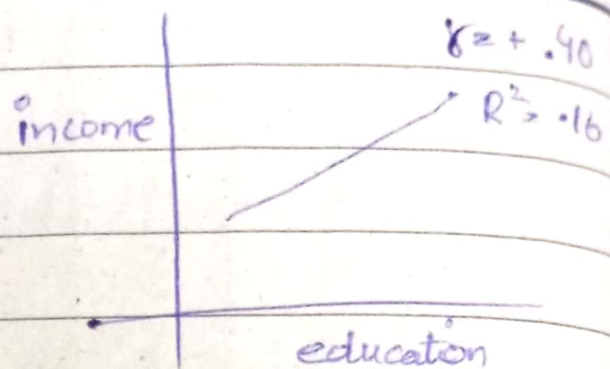 r = + .40
income
R² = .16
education